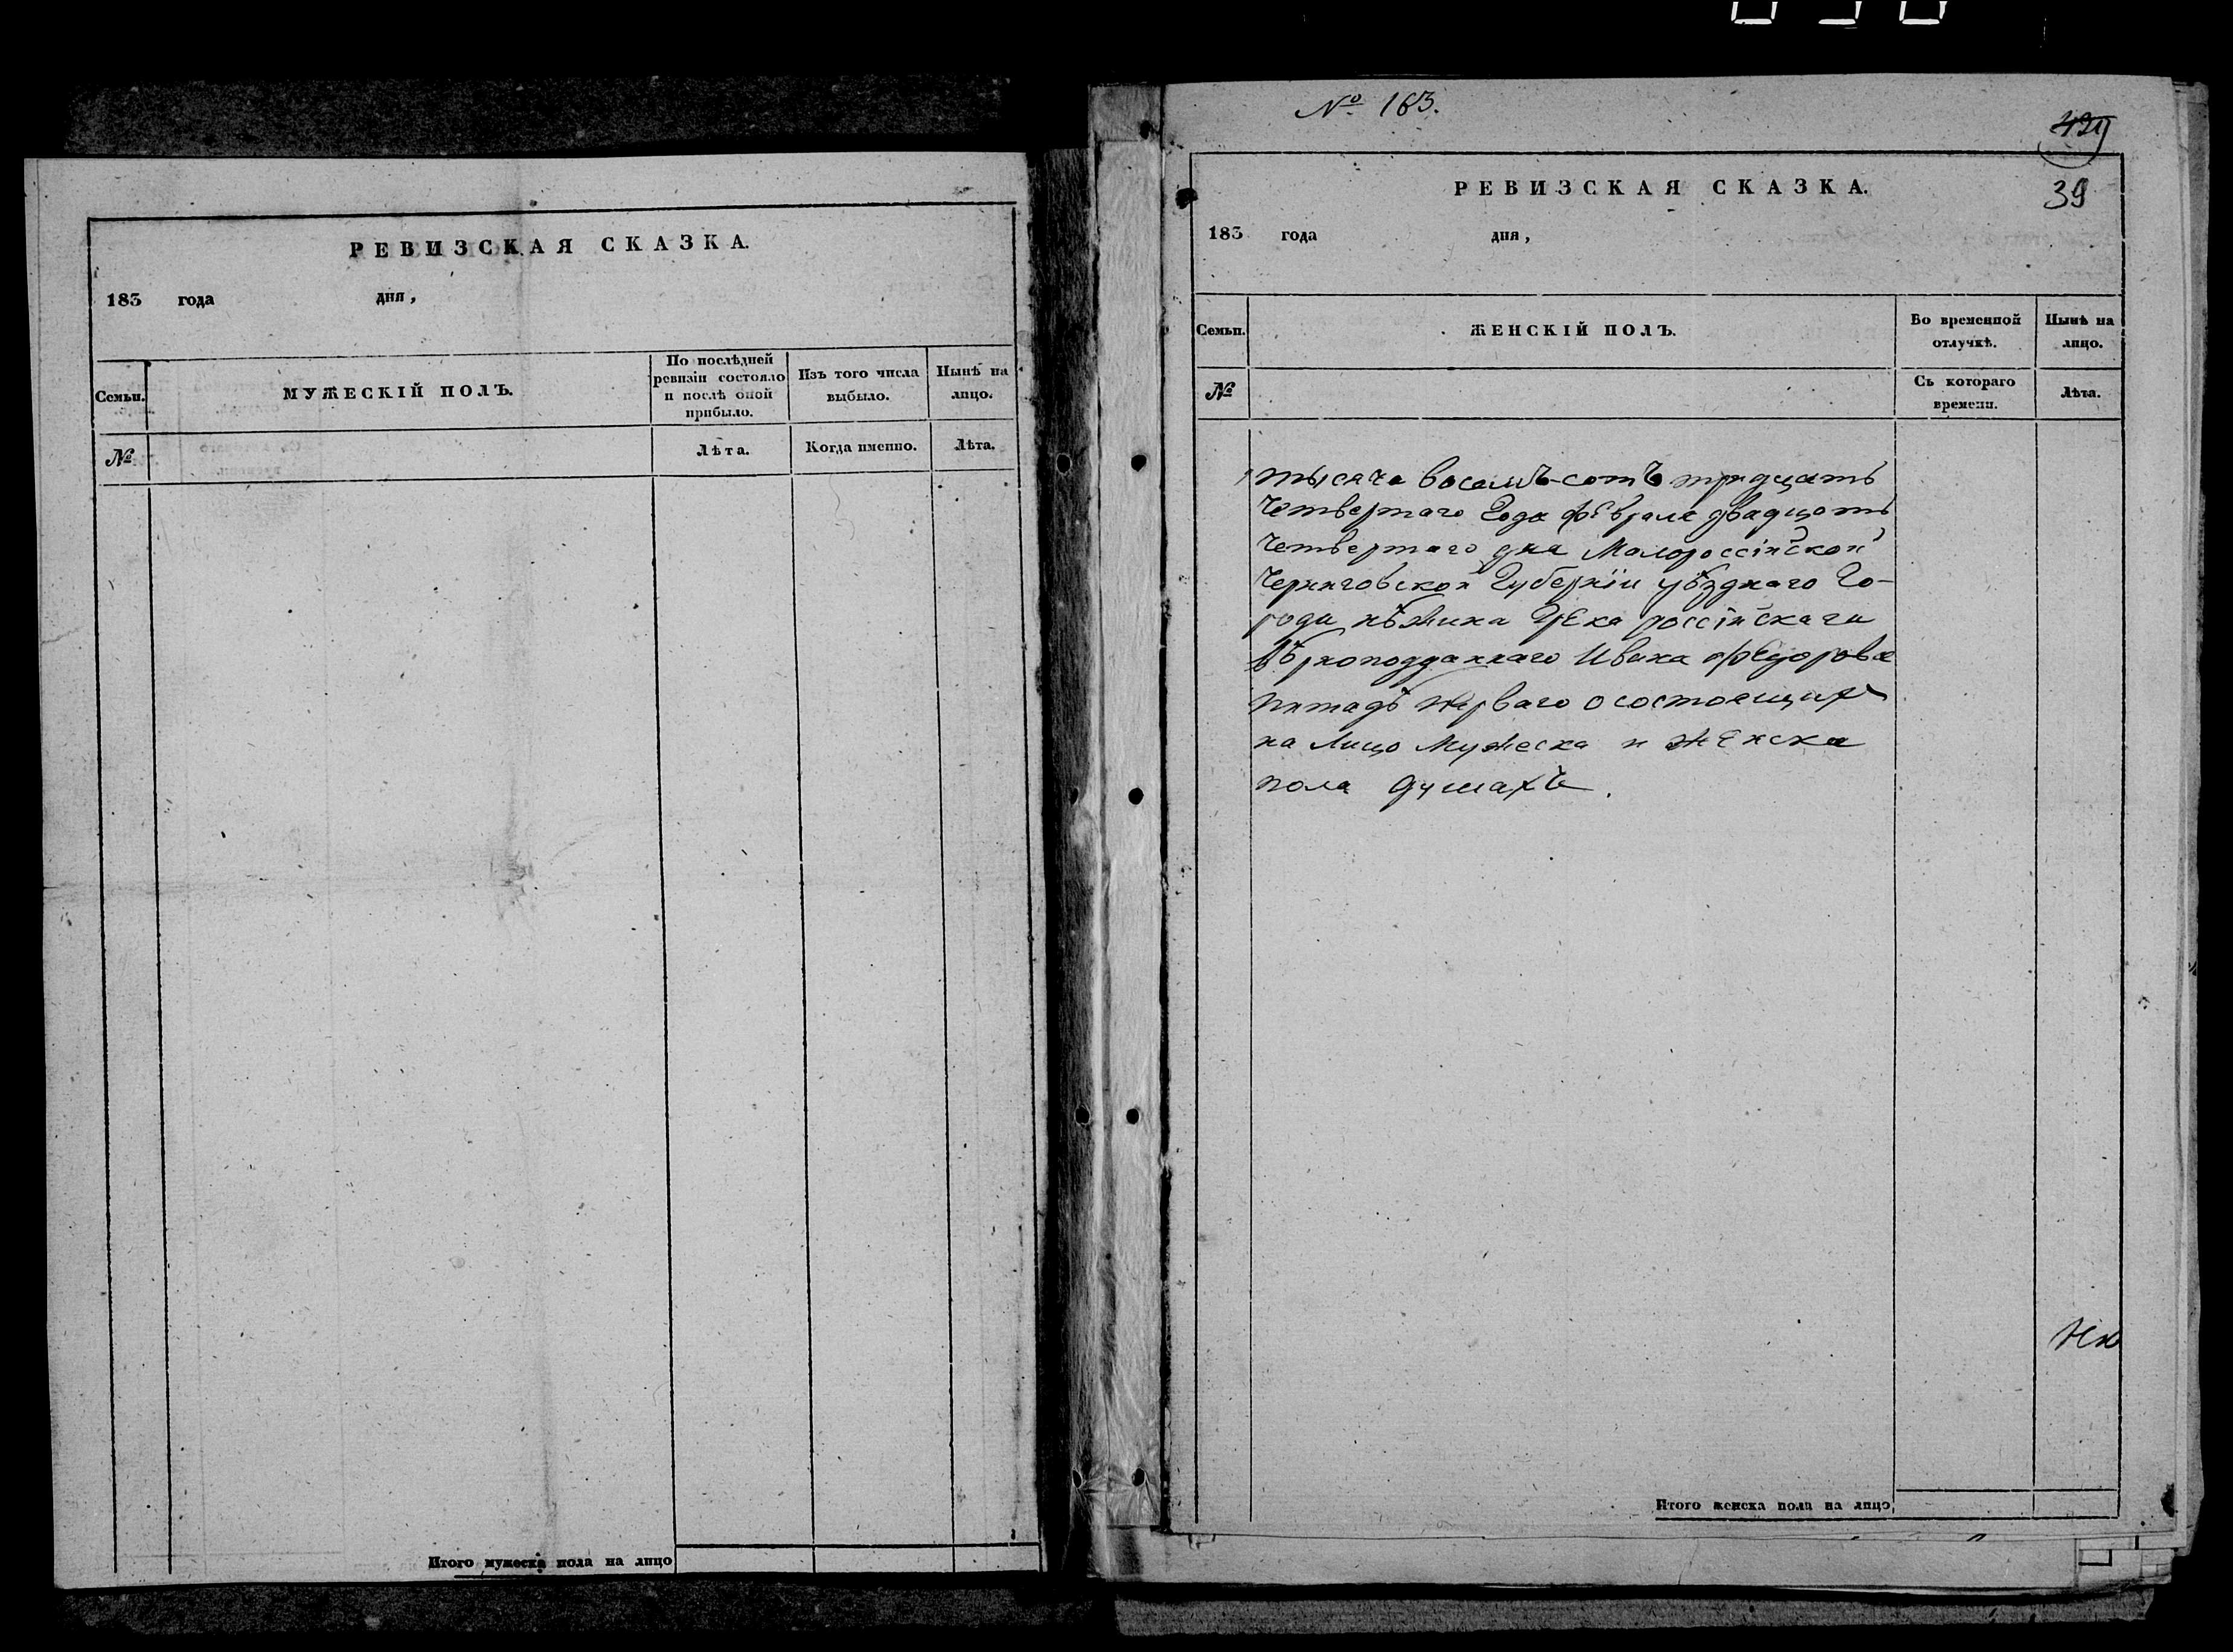 РЕВИЗСКАЯ СКАЗКА.
183 года дня,
Семьи.
МУЖЕСКІЙ ПОЛЪ.
По послѣдней
ревизіи состояло
и послѣ оной
прибыло.
Изъ того числа
выбыло.
Нынѣ на
лицо.
№
Лѣта.
Когда именно.
Лѣта.
Итого мужеска пола на лицо
№ 163.
429
39
РЕВИЗСКАЯ СКАЗКА.
183 года дня,
Семьи.
ЖЕНСКІЙ ПОЛЪ.
Во временной
отлучкѣ.
Нынѣ на
лицо.
№
Съ котораго
времени.
Лѣта.
тысяча восемъ-сотъ тридцать
Четвертаго Года февраля двадцать
Четвертаго дня Малороссійской
Черниговской Губерніи уѣзднаго Го-
рода нѣжина Грека россійскаго
вѣрноподданнаго Ивана Федорова
перваго о состоящихъ
на лицо Мужеска и Женска
пола душахъ.
Итого женска пола на лицо